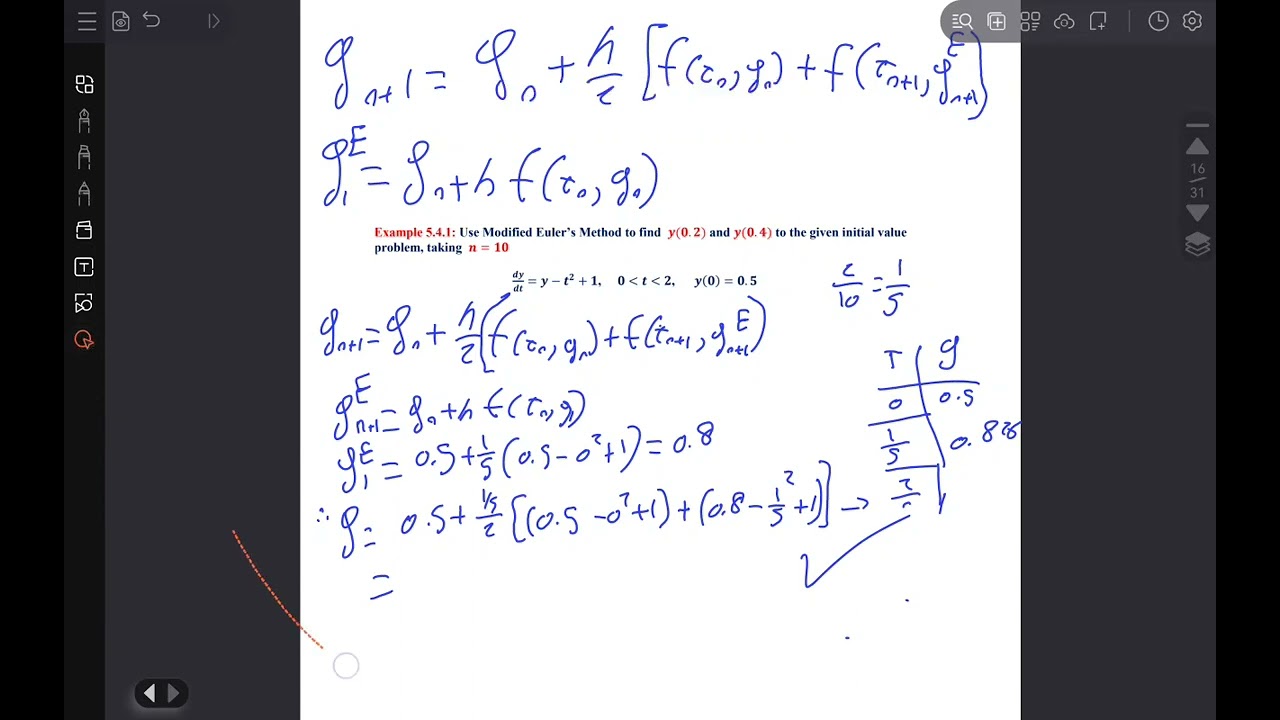 y_{n+1} = y_n + h/2 [f(t_n, y_n) + f(t_{n+1}, y^E_{n+1})]
y^E_1 = y_n + h f(t_n, y_n)
16
31
Example 5.4.1: Use Modified Euler's Method to find y(0.2) and y(0.4) to the given initial value
problem, taking n = 10
dy/dt = y − t² + 1, 0 < t < 2, y(0) = 0.5
2/10 = 1/5
y_{n+1} = y_n + h/2 [f(t_n, y_n) + f(t_{n+1}, y^E_{n+1})]
T | y
0 | 0.5
1/5 | 0.826
y^E_{n+1} = y_n + h f(t_n, y)
y^E_1 = 0.5 + 1/5 (0.5 − 0² + 1) = 0.8
∴ y = 0.5 + 1/5/2 [(0.5 − 0² + 1) + (0.8 − 1/5² + 1)] →
=